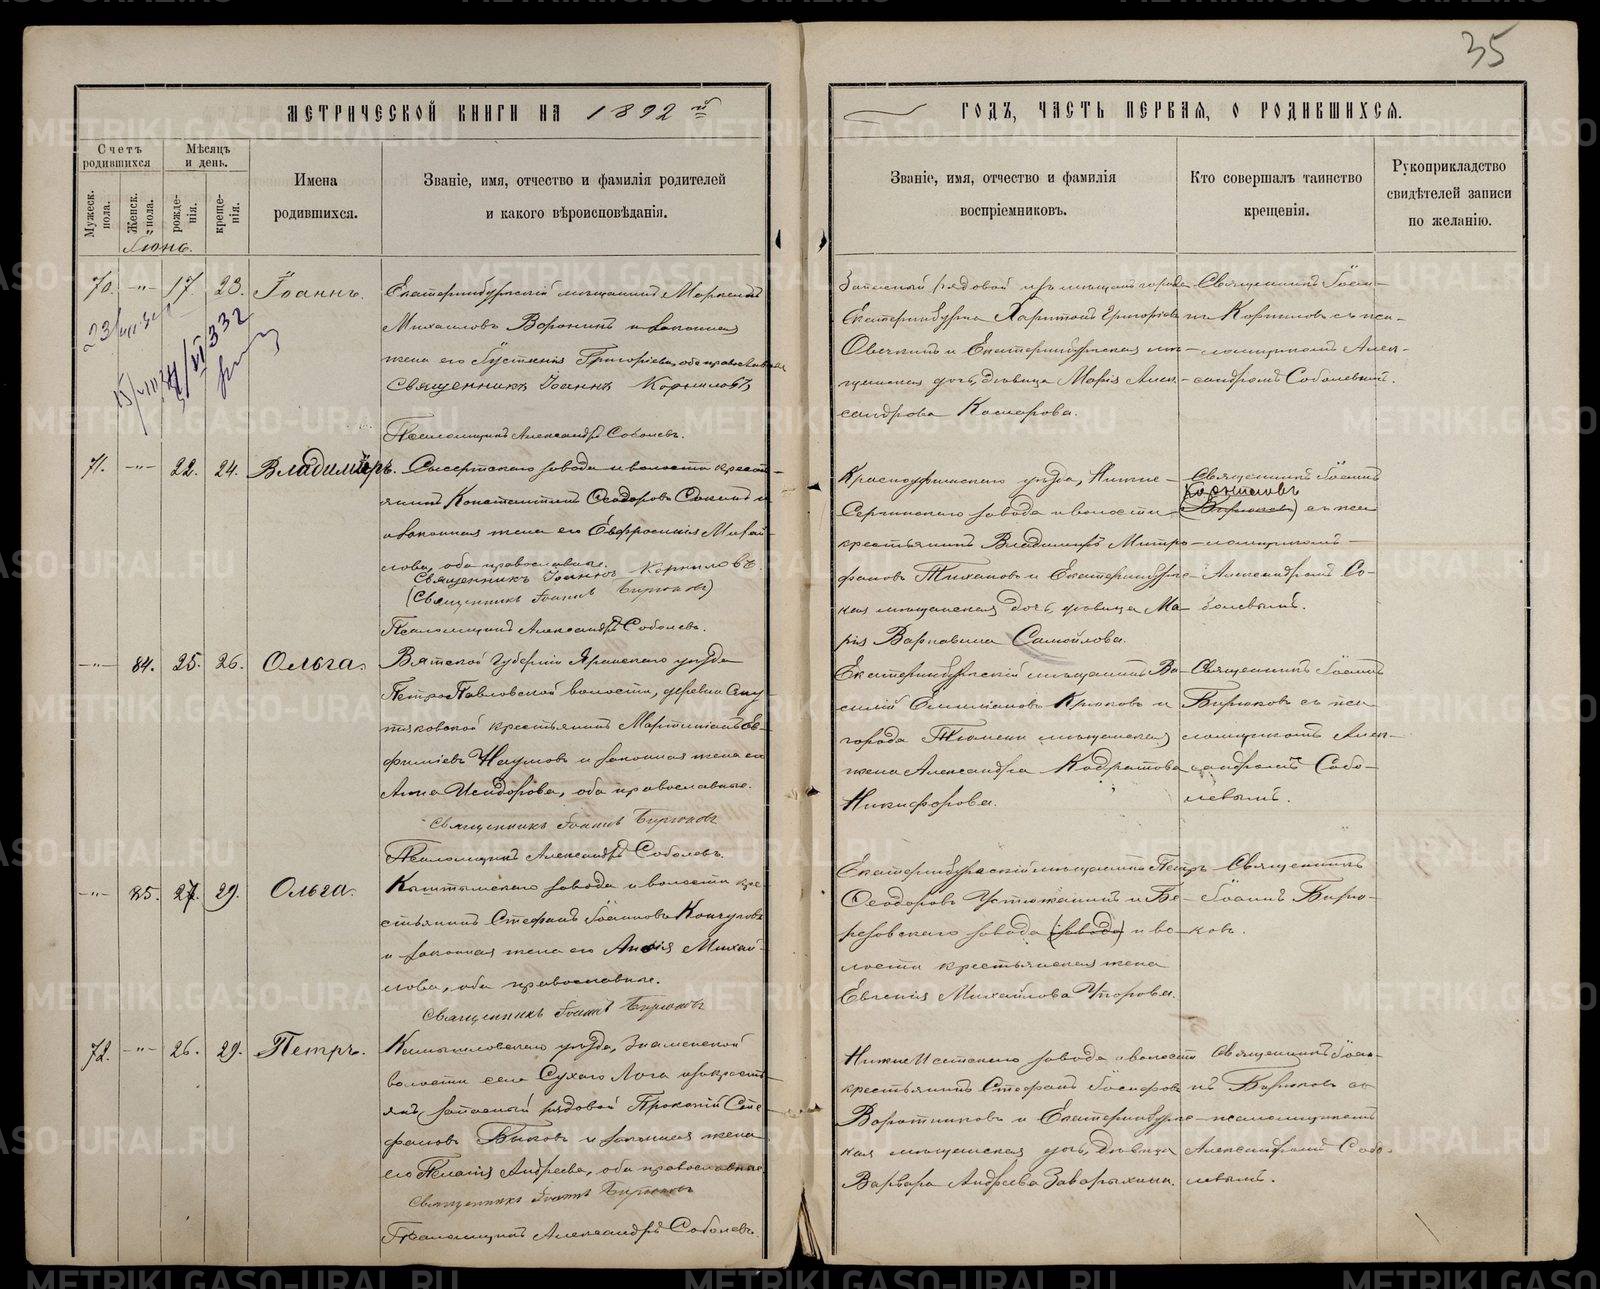 35
МЕТРИЧЕСКОЙ КНИГИ НА 1892 й
ГОДЪ, ЧАСТЬ ПЕРВАЯ, О РОДИВШИХСЯ.
Счетъ родившихся
Мѣсяцъ и день.
Мужеск. пола.
Женск. пола.
рожденія.
крещенія.
Имена
родившихся.
Званіе, имя, отчество и фамилія родителей
и какого вѣроисповѣданія.
Званіе, имя, отчество и фамилія
воспріемниковъ.
Кто совершалъ таинство
крещенія.
Рукоприкладство
свидѣтелей записи
по желанію.
Іюнь.
70. -"- 17 23. Іоаннъ.
Екатеринбургскій мѣщанинъ
Михаиловъ Воронинъ и законная
жена его Григоріева, оба православные
Священникъ Іоаннъ Корниловъ
Псаломщикъ Александръ Соболевъ.
Запасный рядовой изъ мѣщанъ города
Екатеринбурга Харитонъ Григоріевъ
Овечкинъ и Екатеринбургская мѣ-
щанская дочь, дѣвица Марія Алек-
сандрова Комарова.
Священникъ Іоан-
нъ Корниловъ съ пса-
ломщикомъ Алек-
сандромъ Соболевымъ.
71. -"- 22. 24. Владиміръ.
Сысертскаго завода и волости кресть-
янинъ Константинъ Ѳеодоровъ
законная жена его Евфросинія Михай-
лова, оба православные.
Священникъ Іоаннъ Корниловъ.
(Священникъ Іоаннъ Бирюковъ)
Псаломщикъ Александръ Соболевъ.
Красноуфимскаго уѣзда, Нижне-
Сергинскаго завода и волости
крестьянинъ Владиміръ Митро-
фановъ Тихановъ и Екатеринбургс-
кая мѣщанская дочь, дѣвица Ма-
рія Варнавина Самойлова.
Священникъ Іоаннъ
Корниловъ
(Бирюковъ) съ пса-
ломщикомъ
Александромъ Со-
болевымъ.
-"- 84. 25. 26. Ольга.
Вятской губерніи Яранскаго уѣзда
Петропавловской волости, деревни
крестьянинъ Мартиніанъ Ев-
фиміевъ Наумовъ и законная жена его
Анна Исидорова, оба православные.
Священникъ Іоаннъ Бирюковъ
Псаломщикъ Александръ Соболевъ.
Екатеринбургскій мѣщанинъ Ва-
силій Крюковъ и
города Тюмени мѣщанская
жена Александра Кодратова
Никифорова.
Священникъ Іоаннъ
Бирюковъ съ пса-
ломщикомъ Алек-
сандромъ Собо-
левымъ.
-"- 85. 27. 29. Ольга.
Кыштымскаго завода и волости кре-
стьянинъ Стефанъ Іоанновъ
и законная жена его Михай-
лова, оба православные.
Священникъ Іоаннъ Бирюковъ
Екатеринбургскій мѣщанинъ Петръ
Ѳеодоровъ Устюжанинъ и Бе-
резовскаго завода (завода) и во-
лости крестьянская жена
Евгенія Михайлова Упорова.
Священникъ
Іоаннъ Бирю-
ковъ.
72. -"- 26. 29. Петръ.
Камышловскаго уѣзда, Знаменской
волости села Сухаго Лога изъ кресть-
янъ, запасный рядовой Прокопій Сте-
фановъ Быковъ и законная жена
его Пелагія Андреева, оба православные.
Священникъ Іоаннъ Бирюковъ
Псаломщикъ Александръ Соболевъ.
Нижне Исетскаго завода и волости
крестьянинъ Стефанъ Іосифовъ
Воротниковъ и Екатеринбургс-
кая мѣщанская дочь, дѣвица
Варвара Андреева Заварыхина.
Священникъ Іоан-
нъ Бирюковъ съ
псаломщикомъ
Александромъ Собо-
левымъ.
METRIKI.GASO-URAL.RU